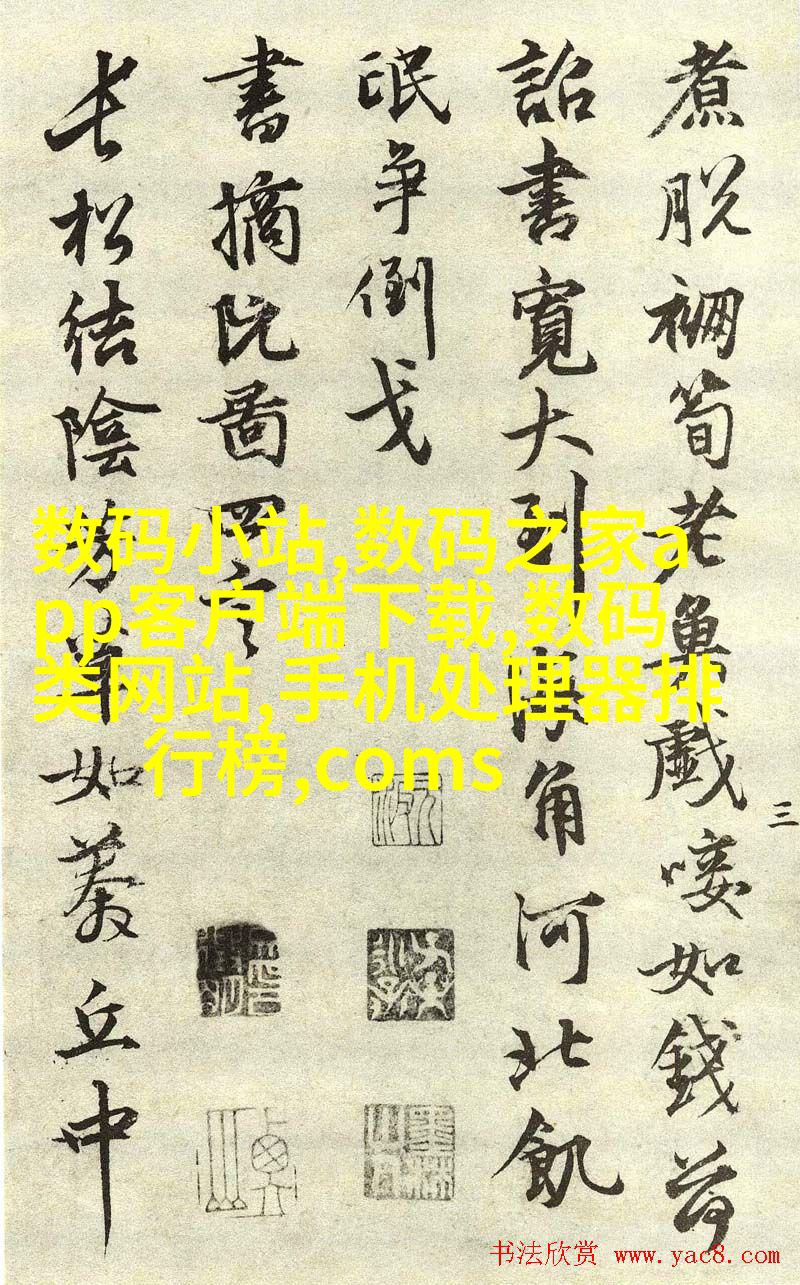 煮脱筍老魚戲唼如錢荷
詔書寬大到海角河北飢
氓争倒戈
書摘阮圖四言
長松結陰如丘中
三
数码小站,数码之家a
pp客户端下载,数码
类网站,手机处理器排
行榜,coms
书法欣赏 www.yac8.com